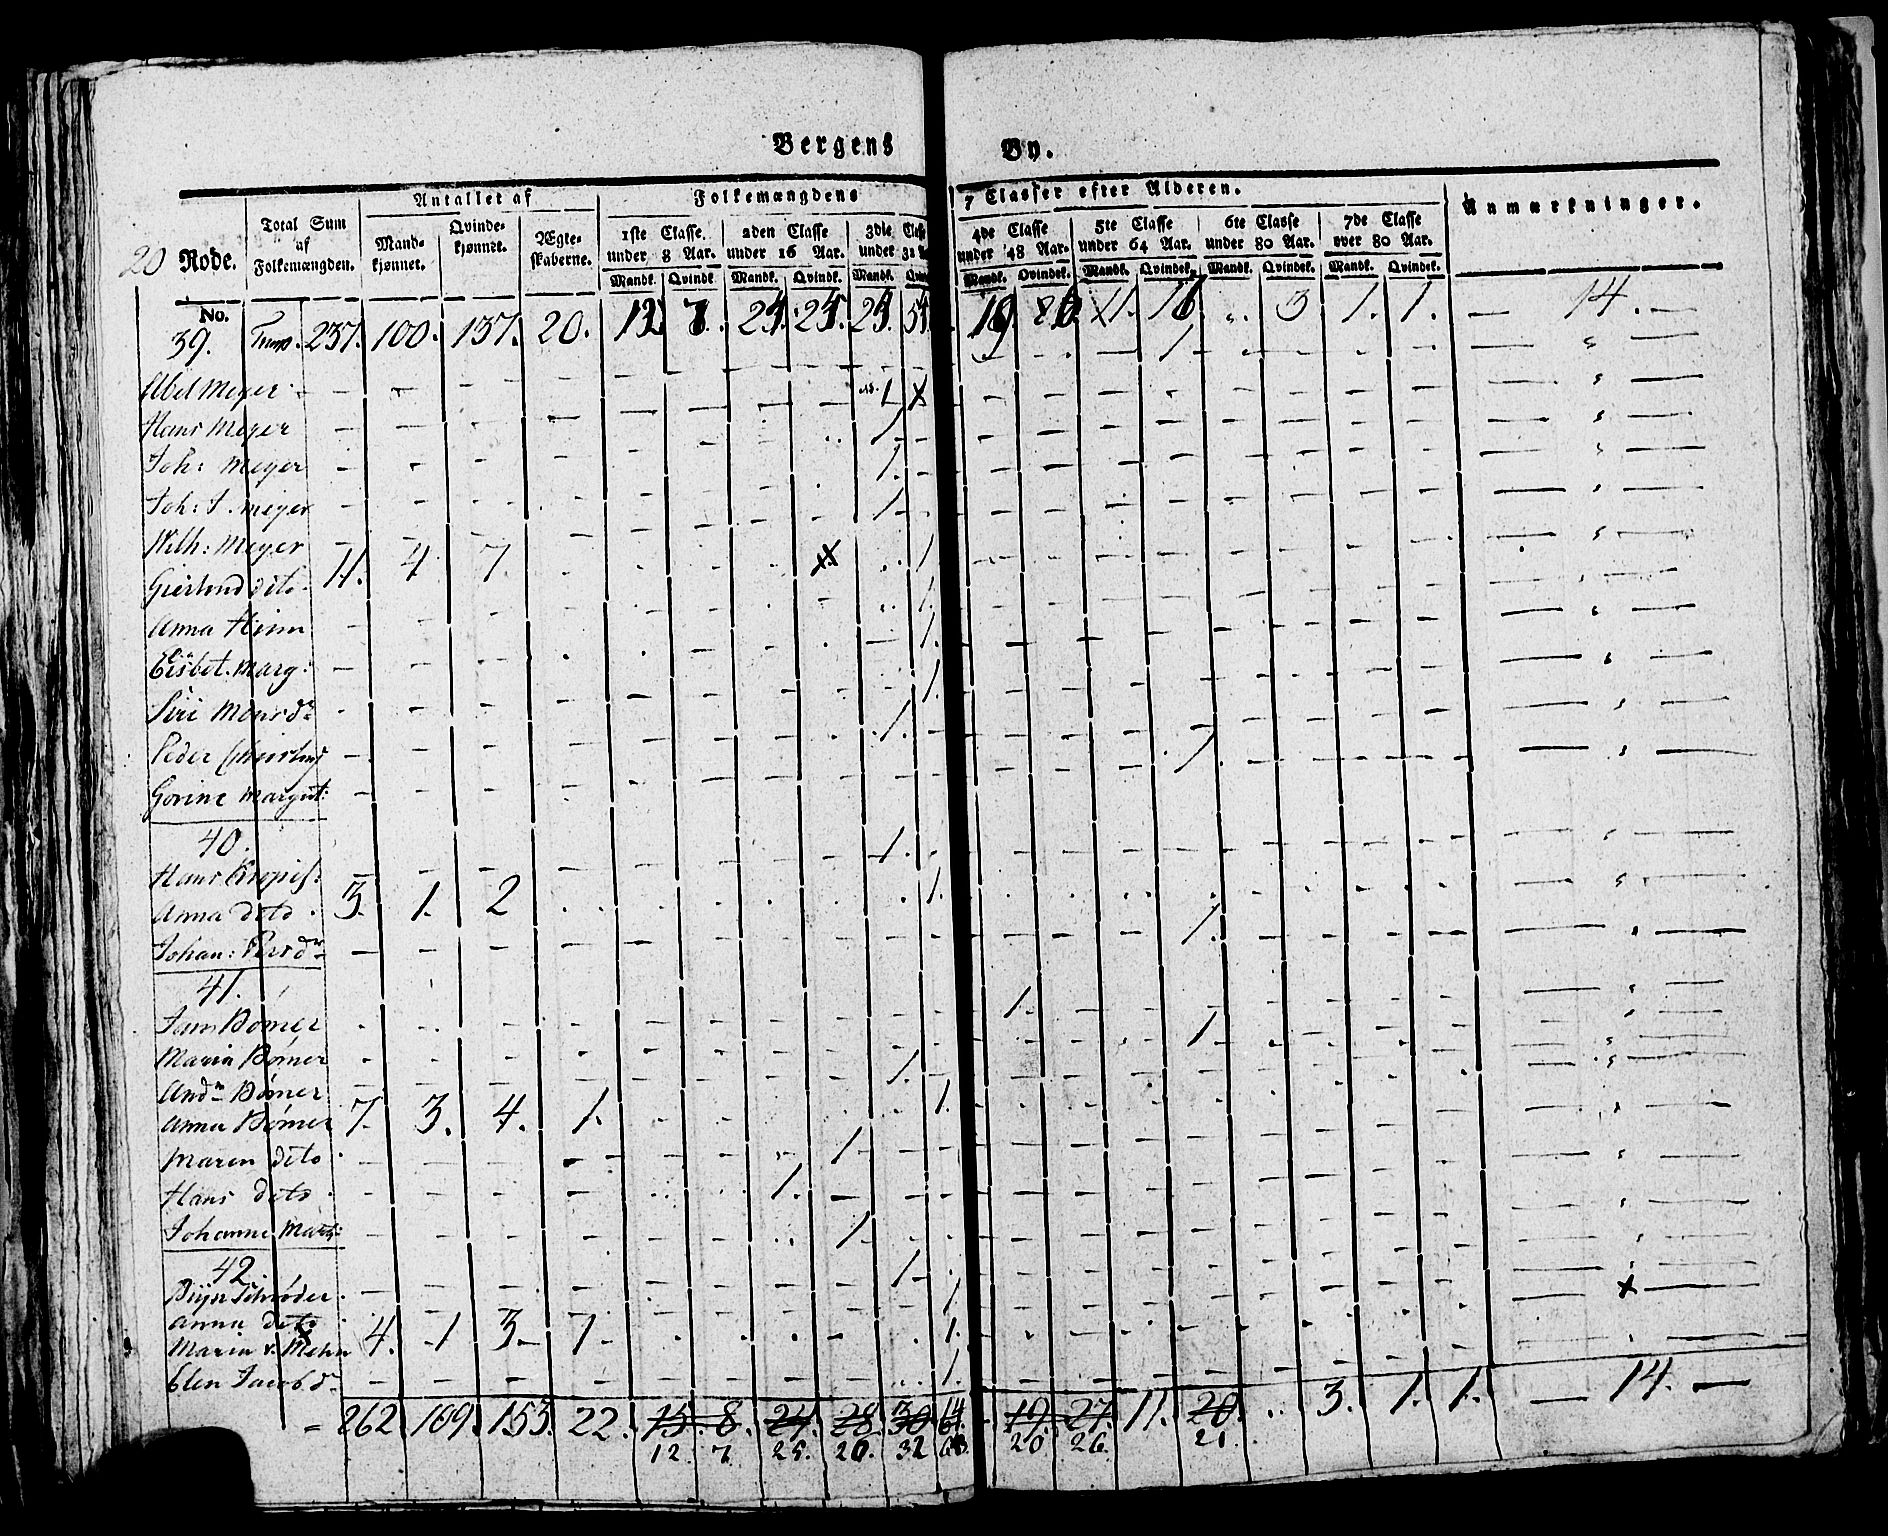 Bergens By.
20 Rode.
Total Sum af Folkemængden.
Antallet af
Mandkjønnet.
Qvindekjønnet.
Ægteskaberne.
Folkemængdens 7 Classer efter Alderen.
1ste Classe under 8 Aar.
2den Classe under 16 Aar.
3die Classe under 32
4de Classe under 48 Aar.
5te Classe under 64 Aar.
6te Classe under 80 Aar.
7de Classe over 80 Aar.
Mandk. Qvindk. Mandk. Qvindk. Mandk. Mandk. Qvindek. Mandk. Qvindek. Mandk. Qvindek. Mandk. Qvindek.
Anmærkninger.
No.
39. Transp. 237. 100. 137. 20. 3 1. 1. — 14. —
Abel Meyer
Hans Meyer 1
Joh: Meyer 1
Joh: J. Meyer 1.
Wilh: Meyer 1
Giertrud dito 11. 4 7. 1
Anna 1.
Lisbet. Marg: 1.
Siri Monsdr 1.
Peder 1.
Gorine Margret: 1
40.
Hans 1.
Anna dito 3. 1. 2 1.
Johan: Persdr 1.
41.
Jans Bømer 1.
Maria Bømer 1
Andr Bømer 1.
Anna Bømer 7. 3. 4. 1. 1.
Maren dito 1
Hans dito 1.
Johanne Mart: 1
42.
Schrøder 1
Anna dito 1
Maria v. Mehn 4. 1 3 1 1.
Elen Jacobdr 1.
= 262. 109. 153. 22. 15. 8. 24. 28. 30 19. 27. 11. 20. 3. 1. 1. — 14. —
12. 7. 25. 32 20. 26. 21.